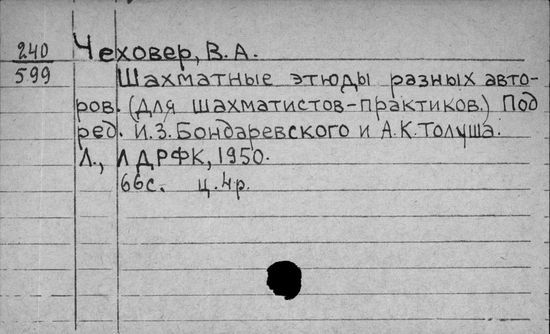 240 Чеховер, В. А.
599 Шахматные этюды разных авто-
ров. (Для шахматистов-практиков.) Под
ред. И.З. Бондаревского и А.К. Толуша.
Л., ЛДРФК, 1950.
66с. ц. 4р.